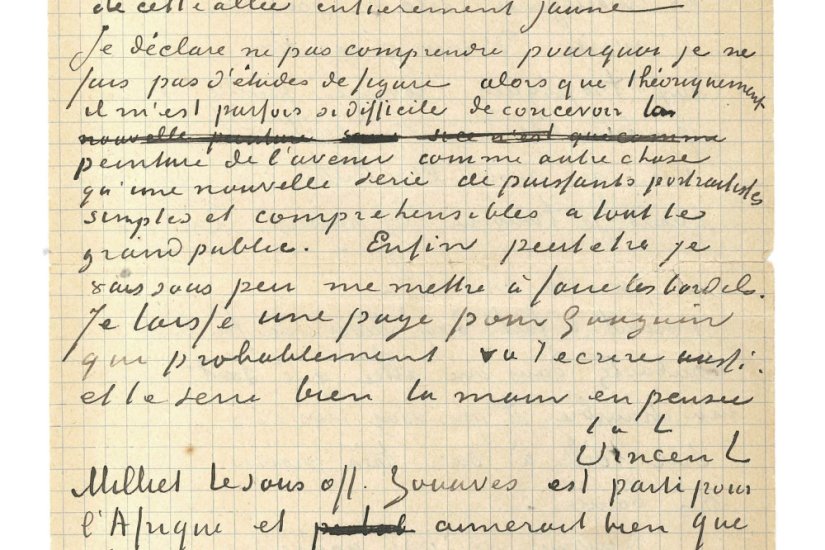 de cette allée entièrement jaune
Je déclare ne pas comprendre pourquoi je ne
fais pas d'études de figure alors que théoriquement
il m'est parfois si difficile de concevoir la
nouvelle peinture sans si ce n'est que comme
peinture de l'avenir comme autre chose
qu'une nouvelle serie de puissants portraitistes
simples et comprehensibles a tout le
grand public. Enfin peutetre je
vais sous peu me mettre à faire les bordels.
Je laisse une page pour Gauguin
qui probablement va t'ecrire aussi.
et te serre bien la main en pensee
t. à t.
Vincent
Milliet le sous off. Zouaves est parti pour
l'Afrique et aimerait bien que